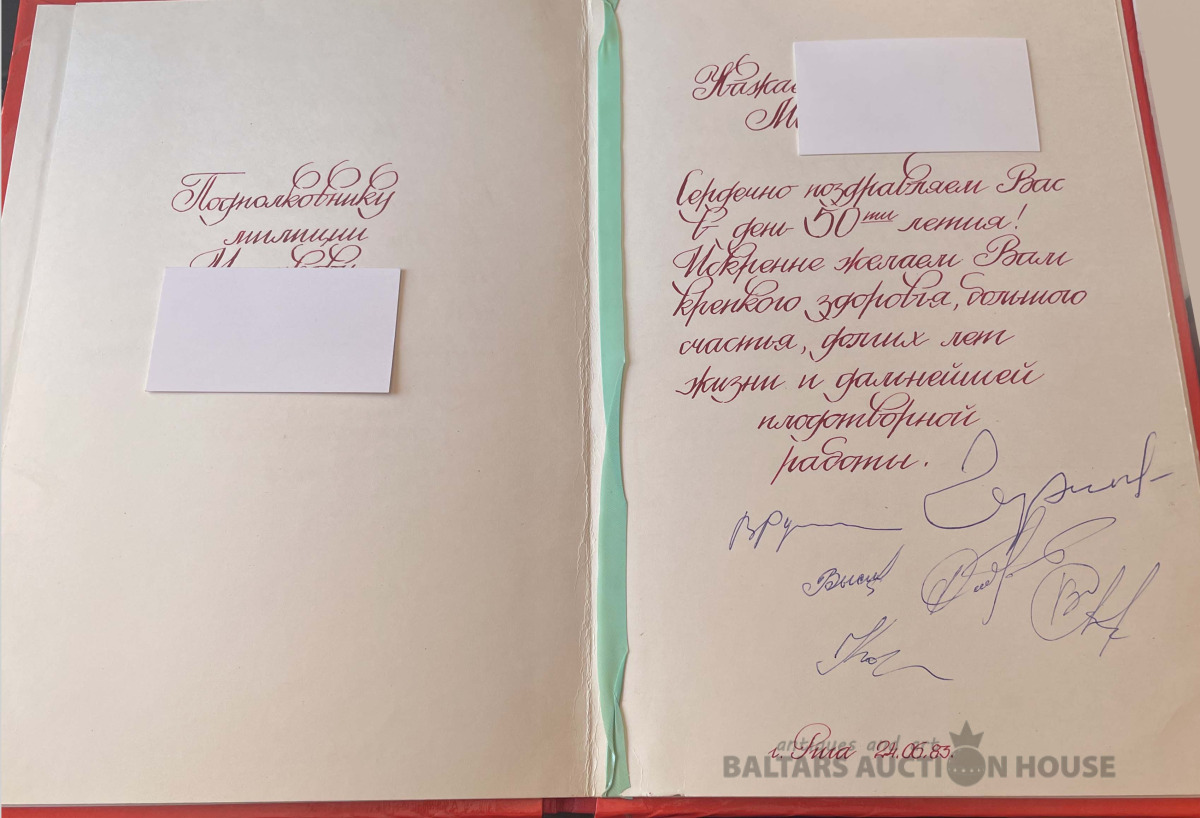 Подполковнику
милиции
Сердечно поздравляем Вас
в день 50ти летия!
Искренне желаем Вам
крепкого здоровья, большого
счастья, долгих лет
жизни и дальнейшей
плодотворной
работы.
г. Рига 24.06.83.
antiques and art
BALTARS AUCTION HOUSE